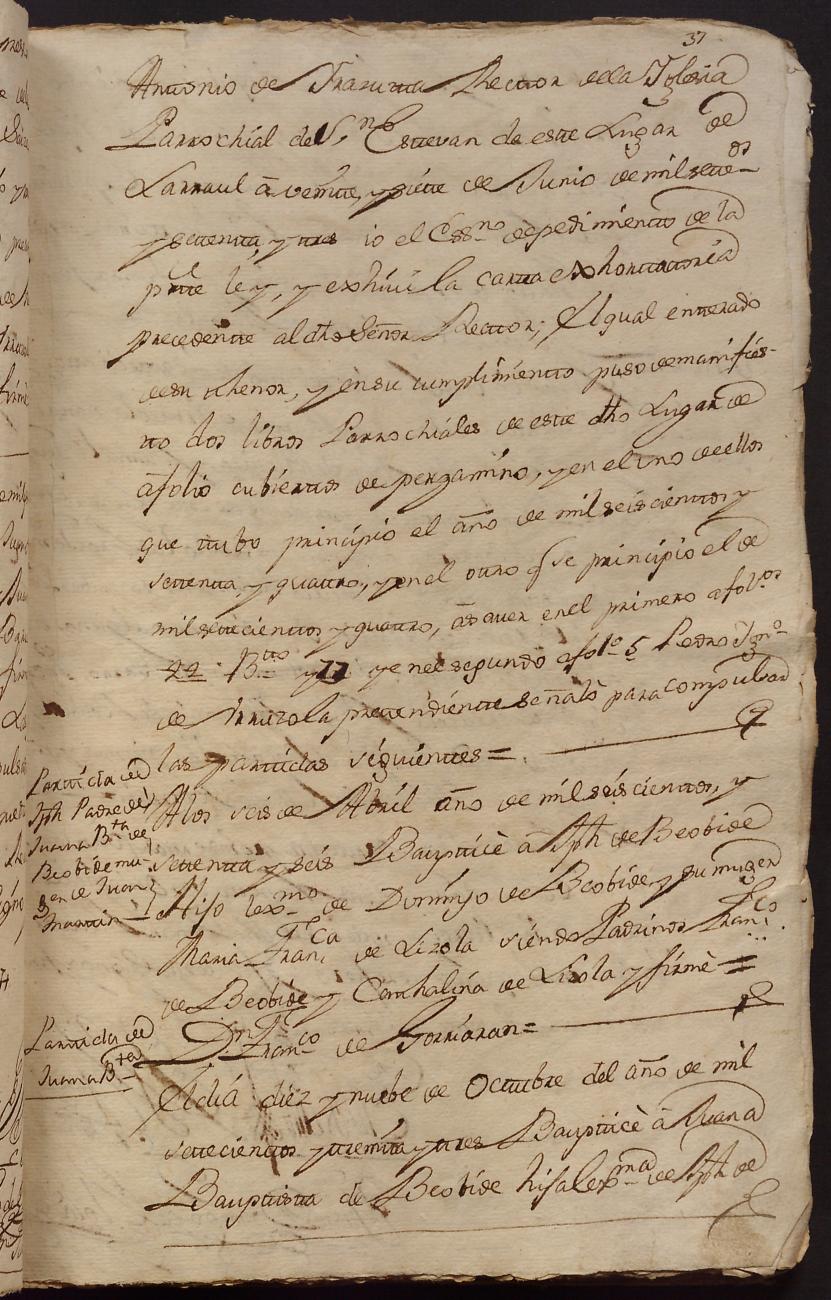 37
Antonio de Yrazuzta Rector de la Yglesia
Parrochial de Sn. Estevan de este Lugar de
Larraul à veinte, y siete de Junio de mil setetos
y settenta, y tres io el Essno. de pedimiento de la
ptte leÿ, y exhiví la cartta exhorttatoria
precedentte al dho Señor Rector; El qual entterado
de su thenor, y en su cumplimientto puso de manifies-
tto dos libros Parrochiales de este dho Lugar de
a folio cubierttos de pergamino, y en el uno de ellos
que ttubo principio el año de mil seiscienttos y
settenta y quattro, y en el otro q se principio el de
mil settecienttos y quattro, à saver en el primero a folios
44 Btto y 77 y en el segundo a folo 5 Pedro Ygno
de Arruzola pretendiente señalò para compulsar
las parttidas siguienttes =
Partida de
Jph Padre de
Juana Bta de
Beobide mu-
ger de Juan
Martin
A los seis de Abril año de mil seiscienttos, y
settenta y seis Baupticè à Jph de Beobide
Hijo lexmo de Domingo de Beobide y su muger
Maria Franca de Lizola siendo Padrinos Franco
de Beobide y Cathalina de Lizola y firmè =
Dn Franco de Gorriaran =
Parttida de
Juana Bta
El dia diez y nuebe de Octubre del año de mil
settecienttos y treinta y tres Baupticè à Juana
Bauptistta de Beobide hija lexma de Jph de